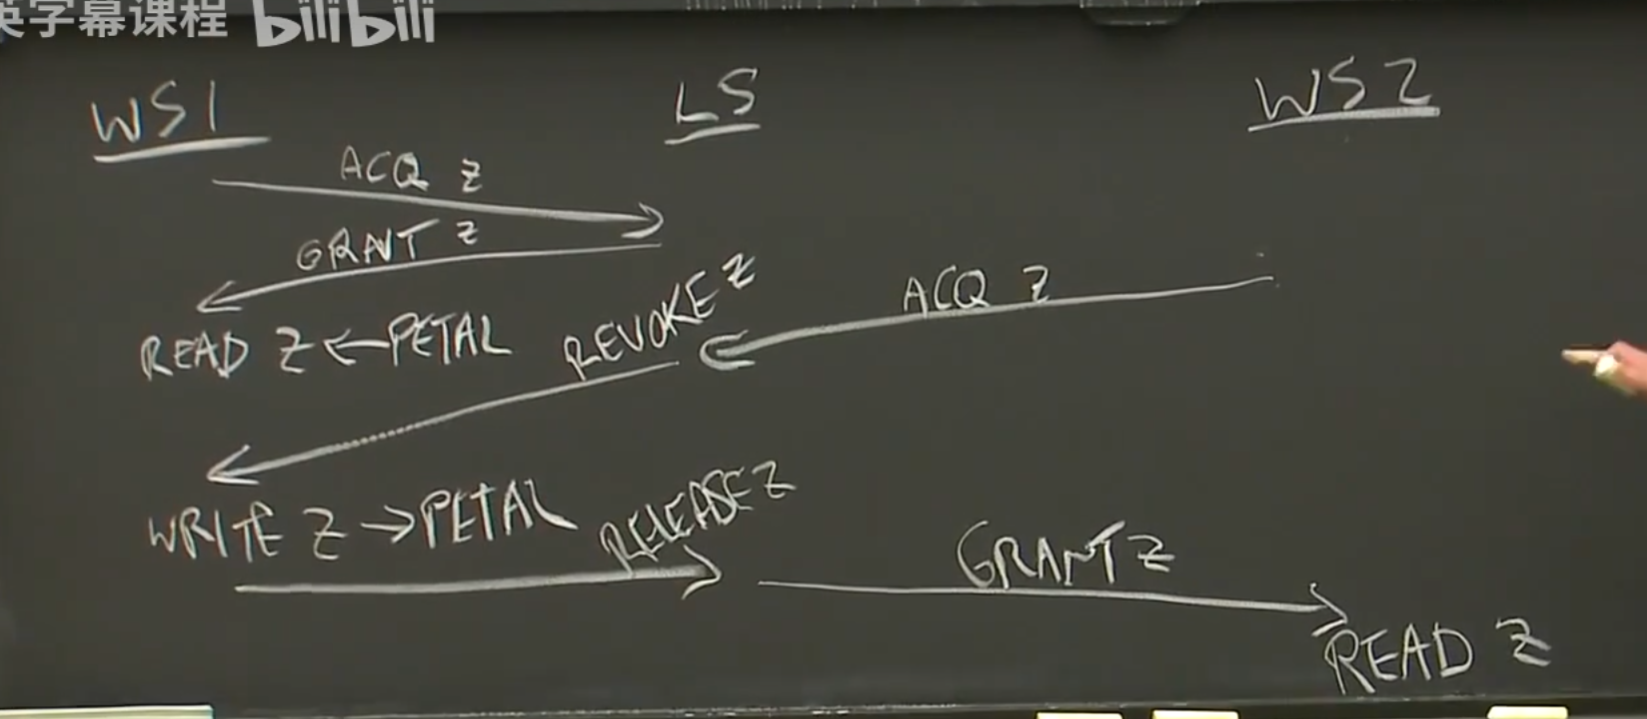 英字幕课程 bilibili
WS1 LS WS2
ACQ Z
GRANT Z
REVOKE Z
ACQ Z
READ Z ← PETAL
WRITE Z → PETAL
RELEASE Z
GRANT Z
READ Z